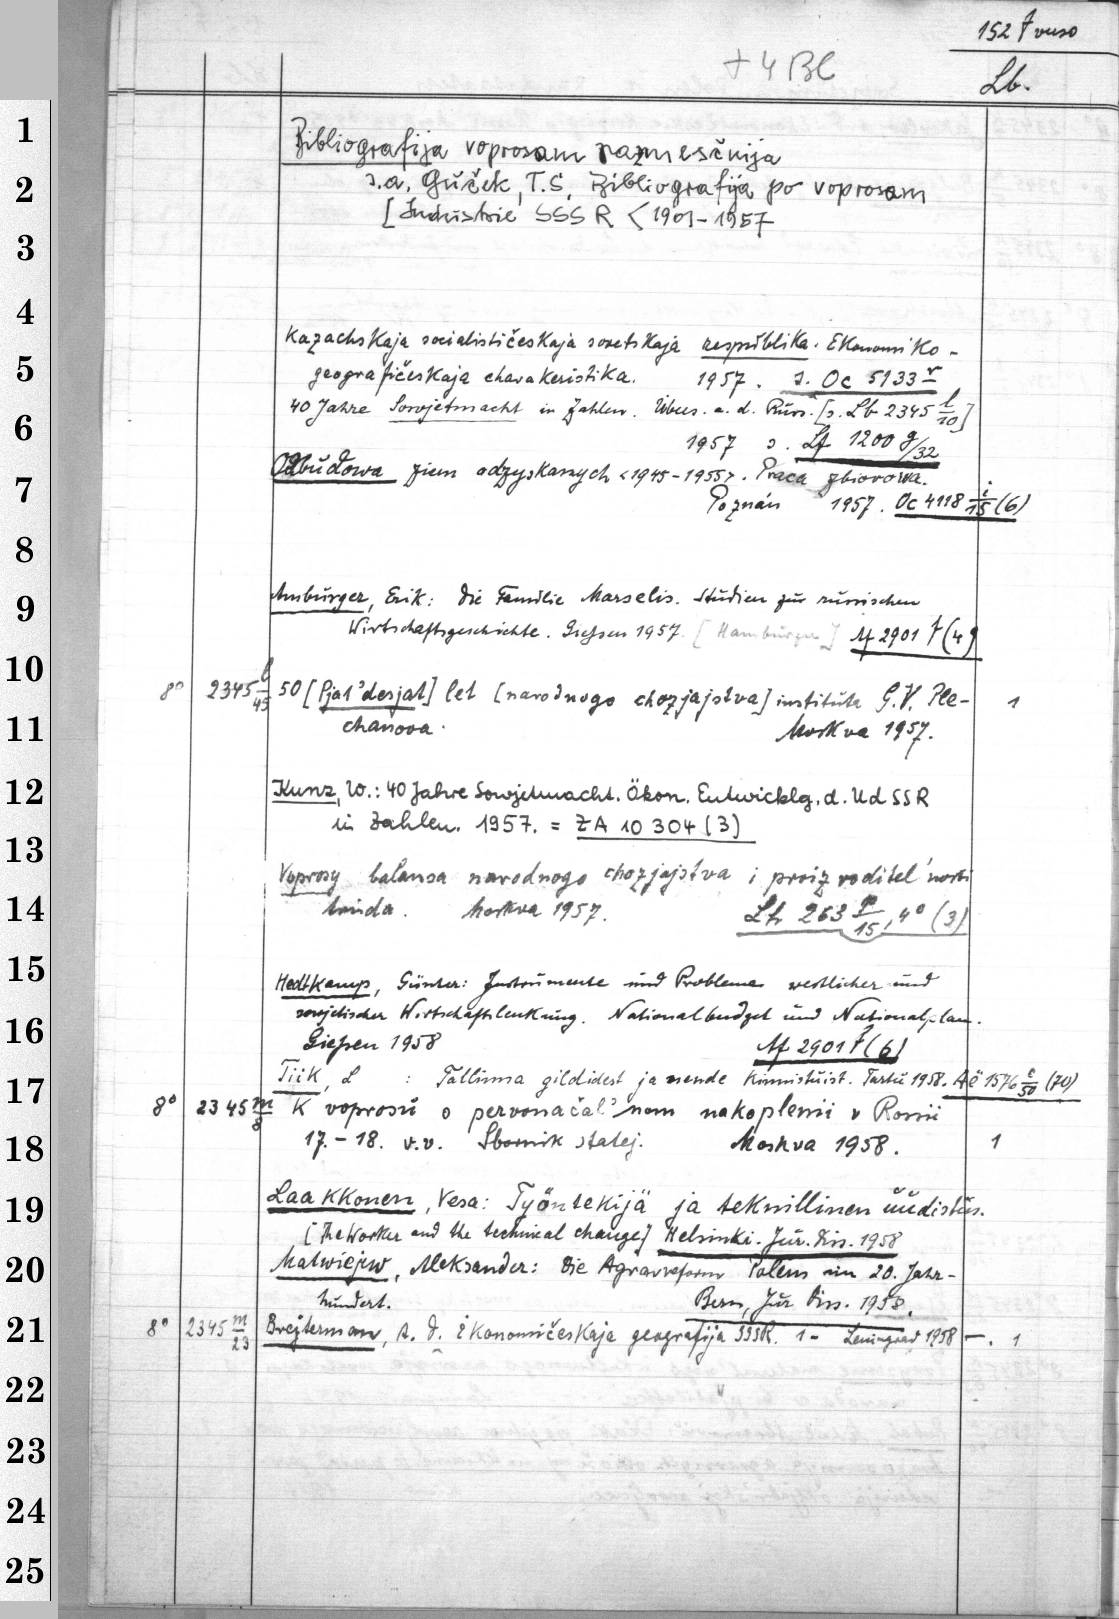 152 f verso
+ 4 Bl
Lb.
1
Bibliografija voprosam razmesčnija
2
s.a. Guček, T.S. Bibliografija po voprosam
[Industrie SSSR <1901-1957
3
4
Kazachskaja socialističeskaja sovetskaja respublika. Ekonomiko-
5
geografičeskaja charakeristika. 1957. s. Oc 5133 r
40 Jahre Sowjetmacht in Zahlen. Übers. a. d. Russ. [s. Lb 2345 l/10]
6
1957 s. Lf 1200 g/32
Odbudowa ziem odzyskanych <1945-1955>. Praca zbiorowa.
7
Poznań 1957. Oc 4118 i/15 (6)
8
Amburger, Erik: Die Familie Marselis. Studien zur russischen
9
Wirtschaftsgeschichte. Giessen 1957. [Hamburger] Af 2901 f (4)
10
8° 2345 l/45 50 [Pjat'desjat] let [narodnogo chozjajstva] instituta G.V. Ple- 1
11
chanova. Moskva 1957.
12
Kunz, W.: 40 Jahre Sowjetmacht. Ökon. Entwicklg. d. UdSSR
in Zahlen. 1957. = ZA 10 304 (3)
13
Voprosy balansa narodnogo chozjajstva i proizvoditel'nosti
14
truda. Moskva 1957. Lh 263 p/15, 4° (3)
15
Hedtkamp, Günter: Instrumente und Probleme westlicher und
sowjetischer Wirtschaftslenkung. Nationalbudget und Nationalplan.
16
Giessen 1958 Af 2901 f (6)
17
Tiik, L : Tallinna gildidest ja nende kinnistuist. Tartu 1958. Aë 1576 i/50 (70)
8° 2345 m/8 K voprosu o pervonačal'nom nakoplenii v Rossii
18
17.-18. v.v. Sbornik statej. Moskva 1958. 1
19
Laakkonen, Vesa: Työntekijä ja teknillinen uudistus.
[The Worker and the technical change] Helsinki. Jur. Diss. 1958
20
Matwiejew, Aleksander: Die Agrarreform Polens im 20. Jahr-
hundert. Bern, Jur Diss. 1958.
21
8° 2345 m/23 Brejterman, A. D. Ekonomičeskaja geografija SSSR. 1- Leningrad 1958 -. 1
22
23
24
25